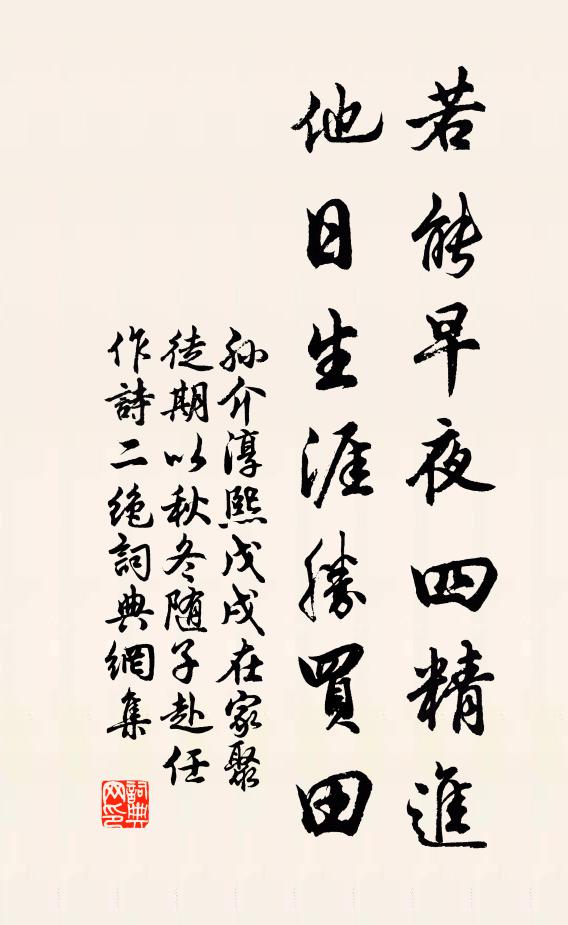 若能早夜四精進
他日生涯勝買田
孙介淳熙戊戌在家聚
徒期以秋冬随子赴任
作詩二绝詞典網集
詞典
网印